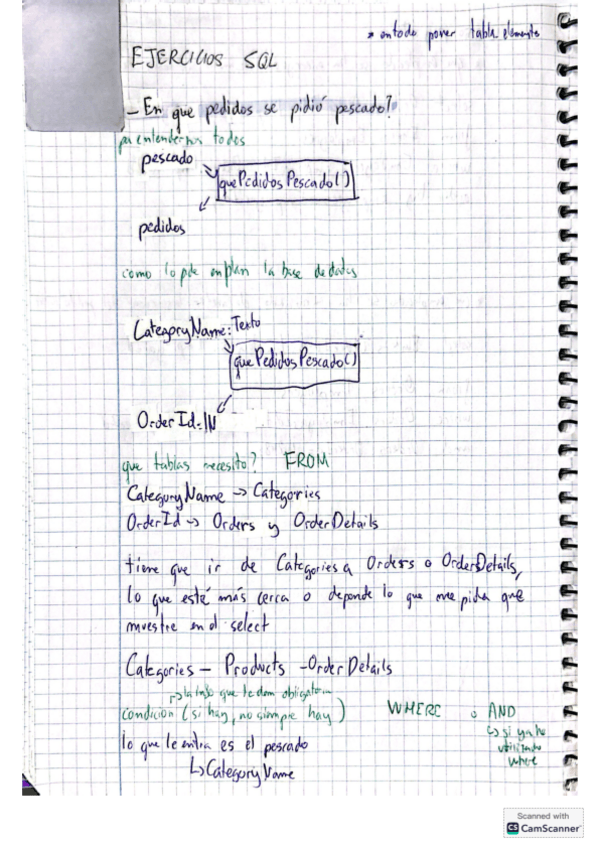 * en todo poner tabla.elemento
EJERCICIOS SQL
- En que pedidos se pidió pescado?
pa entendernos todos
pescado
quePedidosPescado()
pedidos
como lo pde en plan la base de datos
CategoryName: Texto
quePedidosPescado()
OrderId: IN
que tablas necesito? FROM
CategoryName -> Categories
OrderId -> Orders y OrderDetails
tiene que ir de Categories a Orders o OrderDetails,
lo que esté más cerca o depende lo que me pida que
muestre en el select
Categories - Products - OrderDetails
que te dan
condicion (si hay, no siempre hay) WHERE o AND
lo que le entra es el pescado
CategoryName
si ya he
utilizado
where
Scanned with
CS CamScanner